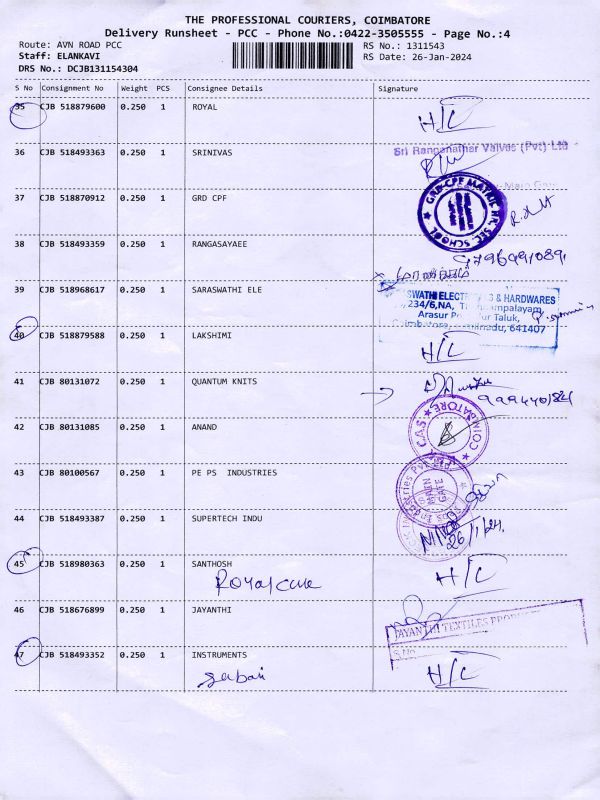 THE PROFESSIONAL COURIERS, COIMBATORE
Delivery Runsheet - PCC - Phone No.:0422-3505555 - Page No.:4
Route: AVN ROAD PCC
RS No.: 1311543
Staff: ELANKAVI
RS Date: 26-Jan-2024
DRS No.: DCJB131154304
S No Consignment No Weight PCS Consignee Details Signature
35 CJB 518879600 0.250 1 ROYAL H/C
36 CJB 518493363 0.250 1 SRINIVAS
Sri Ranganathar Valves (Pvt) Ltd
37 CJB 518870912 0.250 1 GRD CPF
GRD-CPF MATRIC HR. SEC. SCHOOL
38 CJB 518493359 0.250 1 RANGASAYAEE
39 CJB 518968617 0.250 1 SARASWATHI ELE
SWATHI ELECT & HARDWARES
234/6,NA,
Arasur Taluk,
641407
40 CJB 518879588 0.250 1 LAKSHIMI H/C
41 CJB 80131072 0.250 1 QUANTUM KNITS
42 CJB 80131085 0.250 1 ANAND
43 CJB 80100567 0.250 1 PE PS INDUSTRIES
MAIN
GATE
44 CJB 518493387 0.250 1 SUPERTECH INDU
26/1/24.
45 CJB 518980363 0.250 1 SANTHOSH H/C
Royalcare
46 CJB 518676899 0.250 1 JAYANTHI
JAYANTHI TEXTILES
S.No
47 CJB 518493352 0.250 1 INSTRUMENTS H/C
Sabari